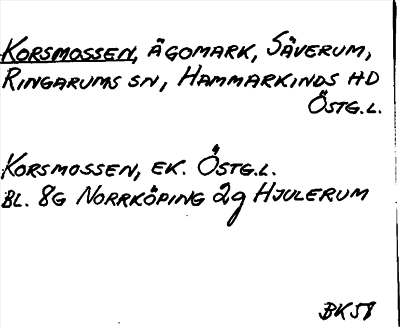 KORSMOSSEN, ÄGOMARK, SÄVERUM,
RINGARUMS SN, HAMMARKINDS HD
ÖSTG.L.
KORSMOSSEN, EK. ÖSTG.L.
BL. 8G NORRKÖPING 2g HJULERUM
BK58